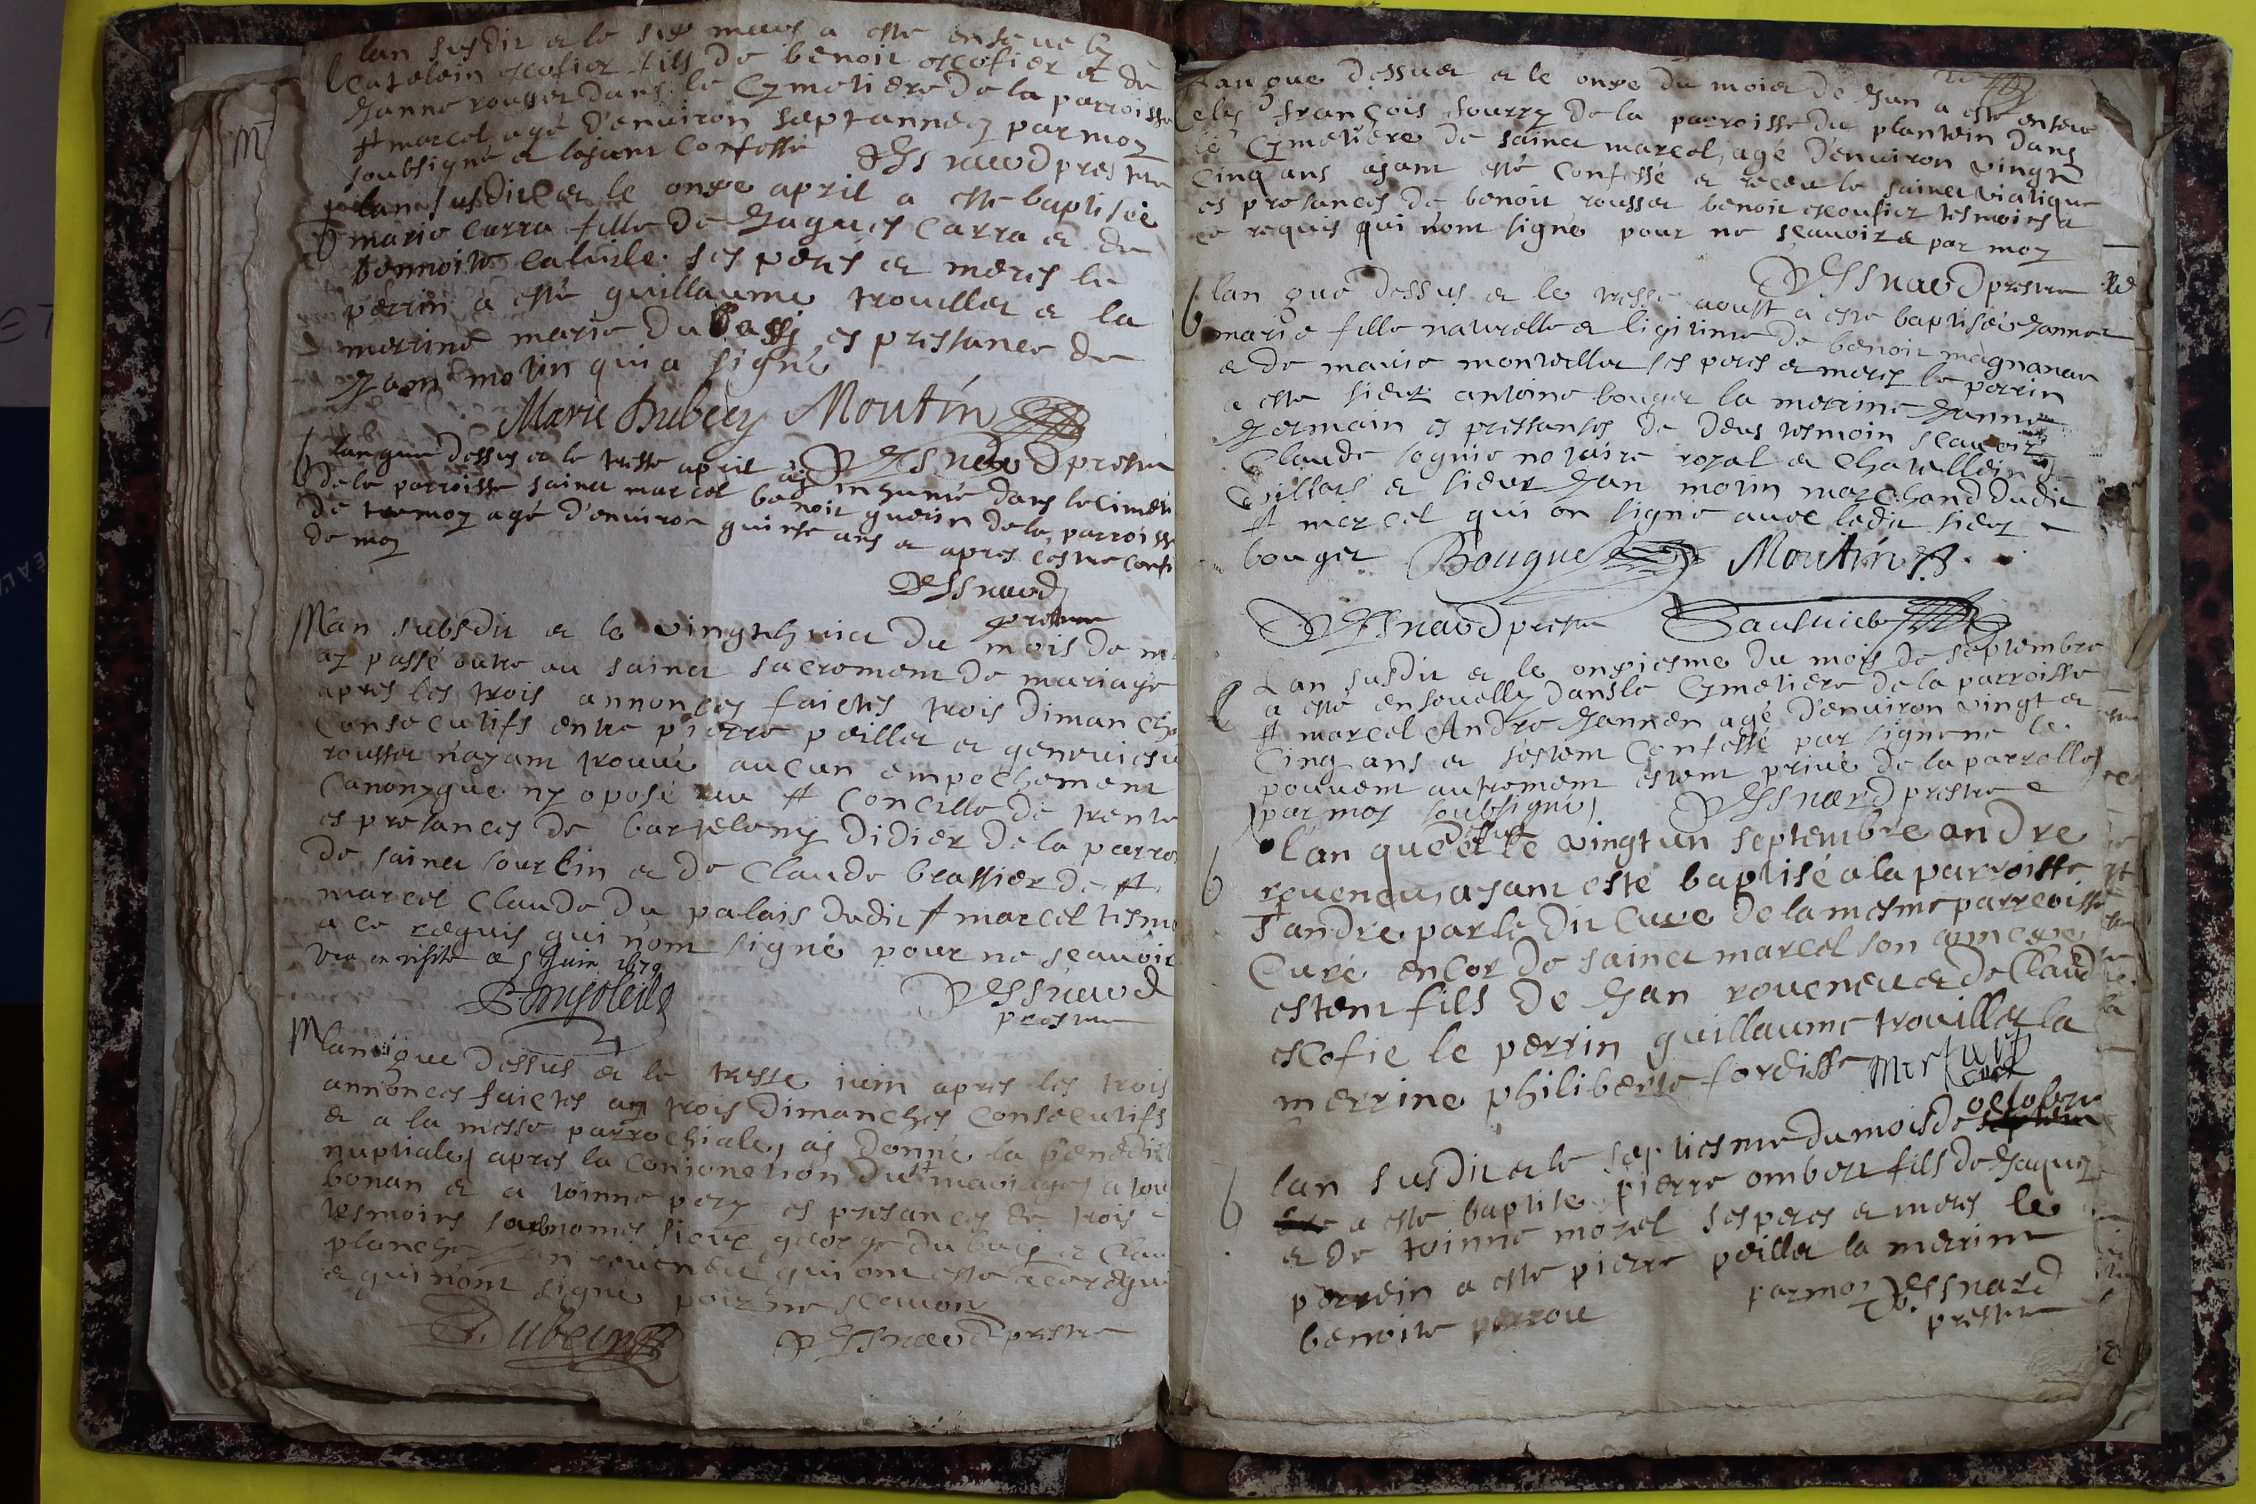 lan susdit et le six mars a esté enseuely
Catelein escofier fils de benoit escofier et de
Janne rouget dans le Cymetiere de la parroisse
St marcel agé d'environ sept années par moy
soubsigné et layant Confessé prestre
lan susdit et le onze april a esté baptisée
marie Carra fille de Jaques Carra et de
bennoite ses peres et meres le
perrin a esté guillaume trouillet et la
merrine marie du es presance de
Jean motin qui a signé
Marie Dubecy Moutin
lan que dessus et le tresse april a esté inhumé dans le Cimeti
de la parroisse sainct marcel benoit guerin de la parroiss
de agé d'environ quinse ans et apres confe
de moy
prestre
M lan subsdit et le vingthuict du mois de m
ay passé outre au sainct sacrement de mariage
apres les trois annonces faictes trois dimanche
Consecutifs entre pierre peillet et geneviesve
rousset n'ayant trouvé aucun empechement
Canonyque ny oposé au St Concille de trente
es presances de bartelemy Didier de la parro
de sainct sourlin et de Claude brassier de St
marcel Claude du palais dudit St marcel tesmo
a ce requis qui n'ont signé pour ne sçavoir
veu en visite ce 5 Juin 1679
prestre
M lan que dessus et le tresse iuin apres les trois
annonces faictes trois dimanches Consecutifs
et a la messe parrochiale, ai donné la benedict
nuptiale, apres la Conionction dudt mariage, a
bonan et a toinne pery es presances de trois
tesmoins sieur george du et Clau
planche Jan reveneu qui ont esté a ce requis
et qui n'ont signé pour ne sçavoir
prestre
Lan que dessus et le onze du mois de Jun a esté enseve
ely françois sourry de la parroisse du plantein dans
le Cymetiere de sainct marcel, agé d'environ vingt
Cinq ans ayant esté Confessé et receu le sainct viatique
es presances de benoit rousset benoit escoufier tesmoins a
ce requis qui n'ont signé pour ne sçavoir et par moy
prestre
b lan que dessus et le tresse aoust a esté baptisée Janne
marie fille naturelle et ligitime de benoit magnanan
et de marie montellier ses peres et meres le perrin
a esté sieur antoine bouget la merrine Janne
Germain es pressances de deus tesmoin sçavoir
Claude sognie notaire royal et Chatellein
villars et sieur Jan motin marchand dudit
St marcel qui on signé avec ledit sieur
bouget Bouguet Moutin
prestre
Lan susdit et le onziesme du mois de septembre
a esté enseuelly dans le Cymetiere de la parroisse
St marcel Andre Jannen agé d'environ vingt et
Cinq ans et s'estent Confessé par signe ne le
pouvent autrement estent privé de la parrolle
par moy soubsigné prestre
b l'an que dessus et le vingt un septembre andre
reveneu, ayant esté baptisé a la parroisse
St andre par le dit Curé de la mesme parroisse
Curé encor de sainct marcel son annexe
estent fils de Jan reveneu et de Claud
escofie le perrin guillaume trouillet la
merrine philiberte fordisse
curé
b lan susdit et le septiesme du mois de octobre
a esté baptisé pierre ombert fils de Jaques
et de toinne morel ses peres et meres le
perrein a esté pierre peillet la merrine
benoite perrou par moy
prestre